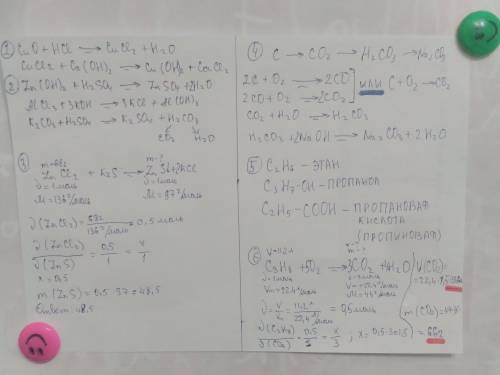 ① CuO + HCl ⇌ CuCl₂ + H₂O
CuCl₂ + Ca(OH)₂ → Cu(OH)₂ + CaCl₂
② Zn(OH)₂ + H₂SO₄ → ZnSO₄ + 2H₂O
AlCl₃ + 3KOH → 3KCl + Al(OH)₃
K₂CO₃ + H₂SO₄ → K₂SO₄ + H₂CO₃
CO₂ H₂O
③ m=68г m-?
ZnCl₂ + K₂S → ZnS↓ + 2KCl
ν=1моль ν=1моль
M=136г/моль M=97г/моль
ν(ZnCl₂) = 68г / 136г/моль = 0,5 моль
ν(ZnCl₂) / ν(ZnS) = 0,5 / 1 = x / 1
x = 0,5
m(ZnS) = 0,5 · 97 = 48,5
Ответ: 48,5
④ C → CO₂ → H₂CO₃ → Na₂CO₃
2C + O₂ → 2CO
2CO + O₂ → 2CO₂ ] ИЛИ C + O₂ → CO₂
CO₂ + H₂O → H₂CO₃
H₂CO₃ + 2NaOH → Na₂CO₃ + 2H₂O
⑤ C₂H₆ – ЭТАН
C₃H₇-OH – ПРОПАНОЛ
C₂H₅-COOH – ПРОПАНОВАЯ
КИСЛОТА
(ПРОПИОНОВАЯ)
⑥ V=11,2л m-?
C₃H₈ + 5O₂ → 3CO₂ + 4H₂O
ν=1моль ν=3моль
Vm=22,4л/моль Vm=22,4л/моль
M=44г/моль
ν = V / Vm = 11,2л / 22,4л/моль = 0,5моль
ν(C₃H₈) / ν(CO₂) = 0,5 / 1 = x / 3 ; x = 0,5·3=1,5
V(CO₂)=
m(CO₂)=
= 66г